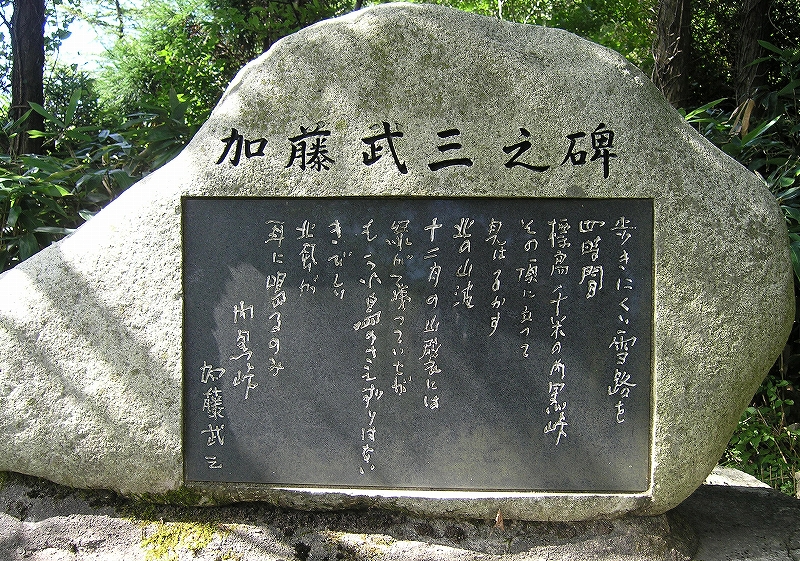 加藤武三之碑
歩きにくい雪路を
四時間
標高千米の内黒峠
その頂に立って
見はるかす
北の山波
十二月の山肌には
緑が残っていたが
もう小鳥のさえずりはない
きびしい
北風が
耳に鳴るのみ
内黒峠
加藤武三